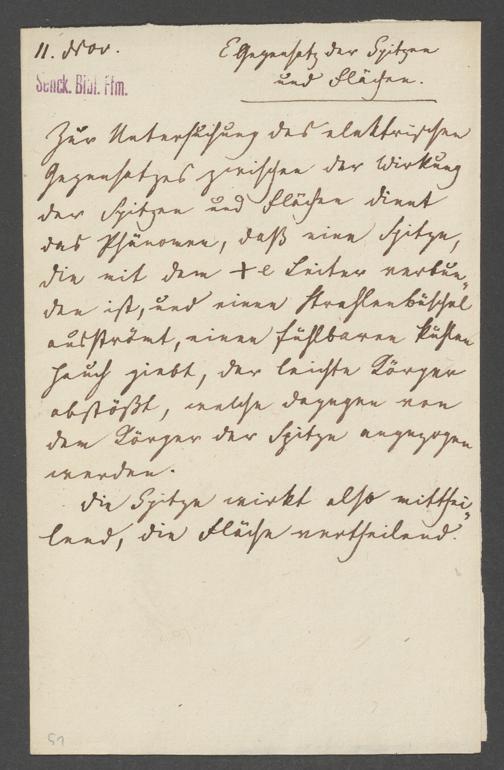 11. Nov.
E Gegensatz der Spitzen
und Flächen.
Senck. Bibl. Ffm.
Zur Untersuchung des elektrischen
Gegensatzes zwischen der Wirkung
der Spitzen und Flächen dient
das Phänomen, daß eine Spitze,
die mit dem +e Leiter verbun„
den ist, und einen Strahlenbüschel
ausströmt, einen fühlbaren kühlen
Hauch giebt, der leichte Körper
abstößt, welche dagegen von
dem Körper der Spitze angezogen
werden.
Die Spitze wirkt also mitthei„
lend, die Fläche vertheilend.
51